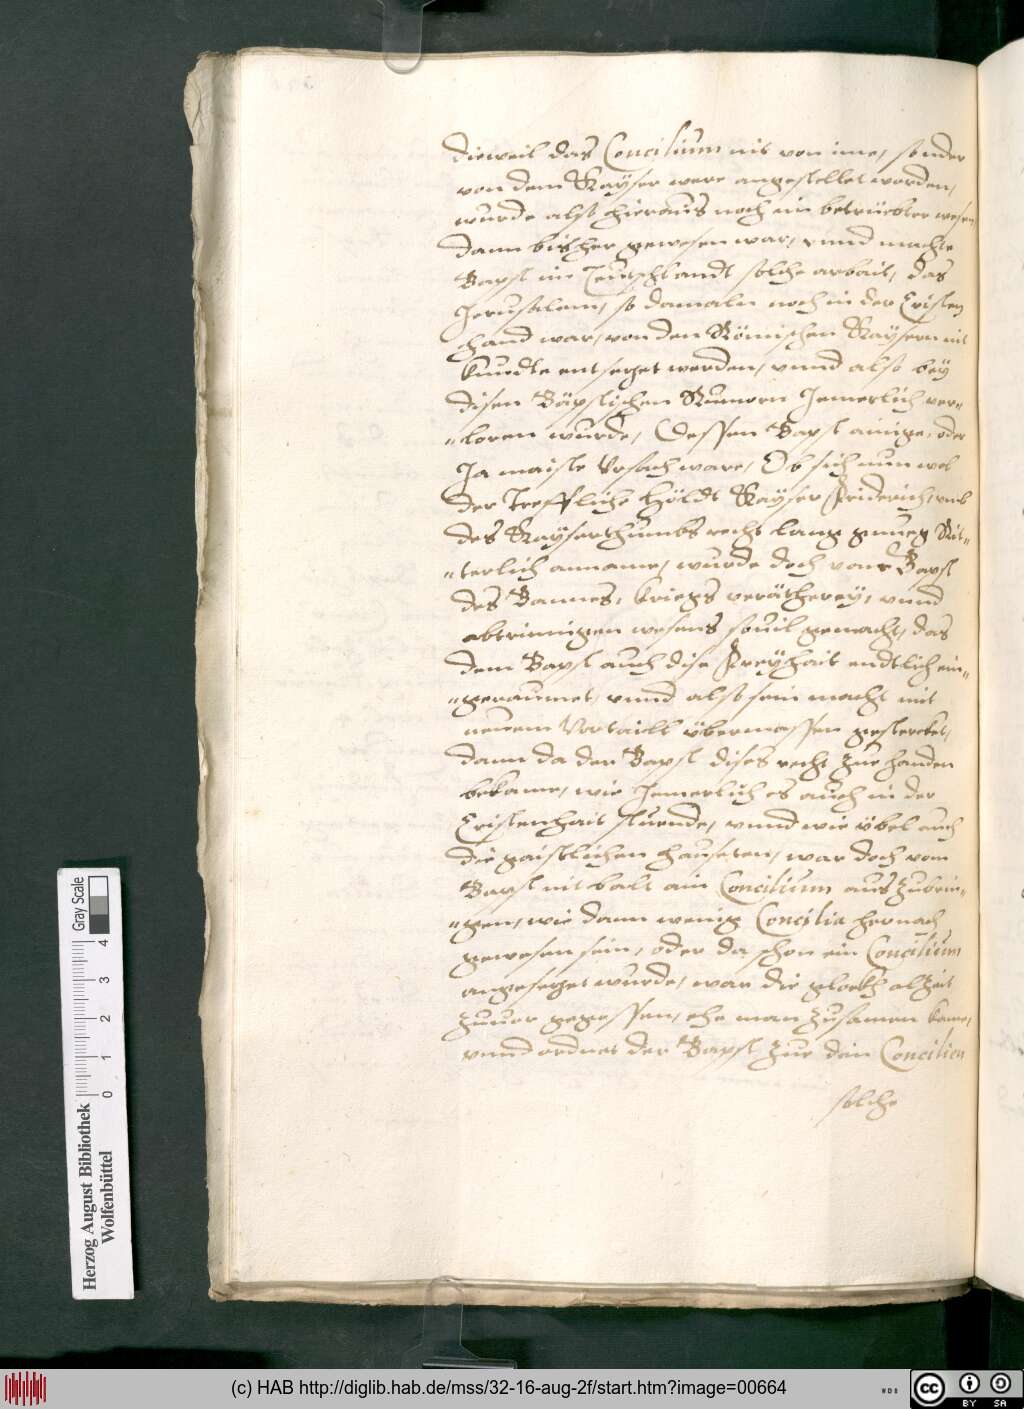 dieweil das Concilium nit von ime, sonder
von dem Kayser were angestellet worden,
wurde also hieraus noch ein betrüebter wesen
dann bisher gewesen war, vnnd machte
Bapst in Teutschlandt solche arbait, das
Jerusalem, so damaln noch in der Cristen
hand war, von den Römischen Kaysern nit
kundte entsezet werden, vnnd also bey
disen Bäpslichen Rumorn Jemerlich ver-
-loren wurde, Dessen Bapst ainige, oder
Ja maiste Vrsach ware, Ob sich nun wol
der Treffliche Höldt Kayser Friderich, vmb
des Kayserthumbs recht lang gnueg Rit-
-terlich anname, wurde doch vom Bapst
des Bannes, kriegs verätherey, vnnd
abtrinnigen wesens souil gemacht, das
dem Bapst auch dise Freyhait endtlich ein-
-geraumet, vnnd also sein macht mit
neuem Vortaill übermassen gestercket,
dann da der Bapst dises recht zue handen
bekame, wie Jemerlich es auch in der
Cristenhait stuende, vnnd wie übel auch
die gaistlichen hauseten, war doch vom
Bapst nit balt ain Concilium auszubrin-
-gen, wie dann wenig Concilia hernach
gewesen sein, oder da schon ein Concilium
angesezet wurde, war die glockh alzeit
zuuor gegossen, ehe man zusamen kame,
vnnd ordnet der Bapst zue dein Concilien
solche
Herzog August Bibliothek
Wolfenbüttel
0 1 2 3 4
Gray Scale
(c) HAB http://diglib.hab.de/mss/32-16-aug-2f/start.htm?image=00664
WDB
cc BY SA